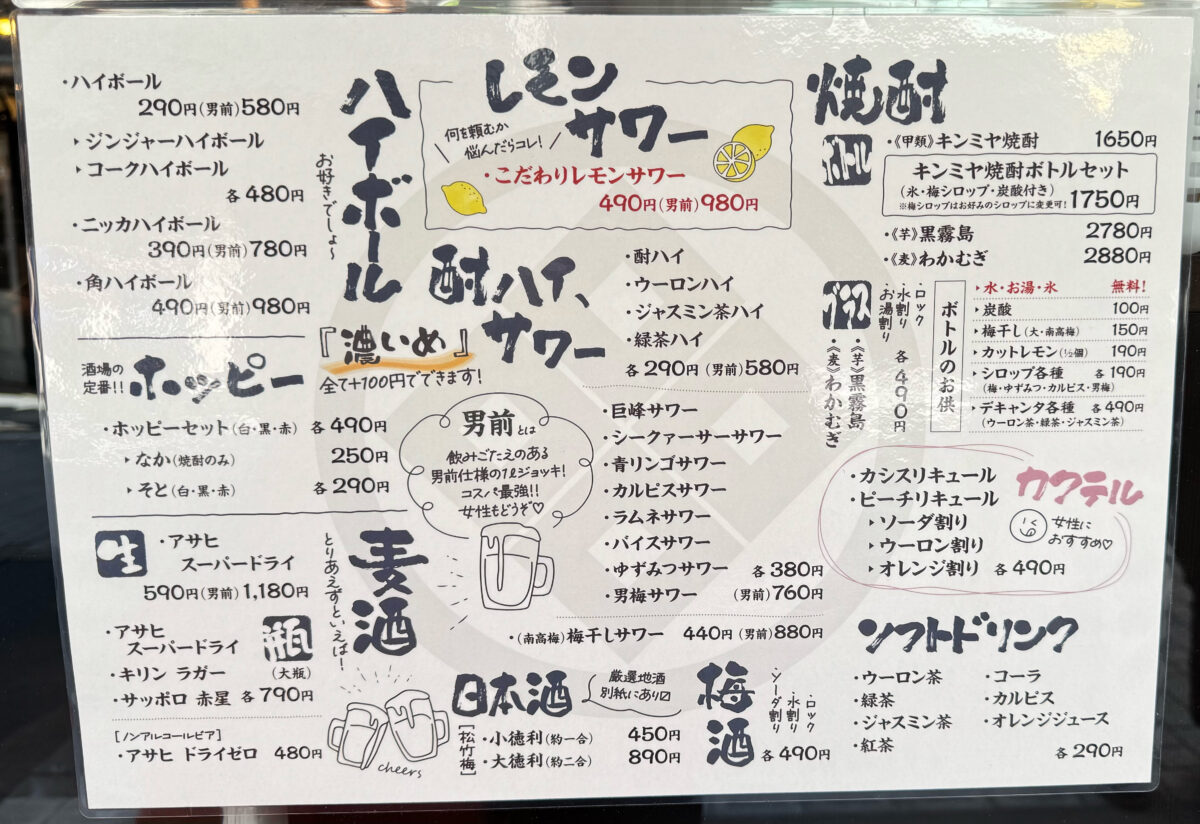 ハイボール
お好きでしょ〜
・ハイボール
290円(男前)580円
▸ジンジャーハイボール
▸コークハイボール
各480円
・ニッカハイボール
390円(男前)780円
・角ハイボール
490円(男前)980円
酒場の
定番!!
ホッピー
・ホッピーセット(白・黒・赤) 各490円
▸なか(焼酎のみ) 250円
▸そと(白・黒・赤) 各290円
麦酒
とりあえずといえば!
生
・アサヒ
スーパードライ
590円(男前)1,180円
瓶
(大瓶)
・アサヒ
スーパードライ
・キリン ラガー
・サッポロ 赤星 各790円
[ノンアルコールビア]
▸アサヒ ドライゼロ 480円
cheers
レモン
サワー
何を頼むか
悩んだらコレ!
・こだわりレモンサワー
490円(男前)980円
酎ハイ、
サワー
『濃いめ』
全て+100円でできます!
・酎ハイ
・ウーロンハイ
・ジャスミン茶ハイ
・緑茶ハイ
各290円(男前)580円
男前とは
飲みごたえのある
男前仕様の1ℓジョッキ!
コスパ最強!!
女性もどうぞ♡
・巨峰サワー
・シークァーサーサワー
・青リンゴサワー
・カルピスサワー
・ラムネサワー
・バイスサワー
・ゆずみつサワー 各380円
・男梅サワー (男前)760円
・(南高梅)梅干しサワー 440円(男前)880円
日本酒
厳選地酒
別紙にあり〼
[松竹梅]
・小徳利(約一合) 450円
・大徳利(約二合) 890円
梅酒
・ロック
・水割り
・ソーダ割り
各490円
焼酎
ボトル
・《甲類》キンミヤ焼酎 1650円
キンミヤ焼酎ボトルセット
(氷・梅シロップ・炭酸付き)
※梅シロップはお好みのシロップに変更可! 1750円
・《芋》黒霧島 2780円
・《麦》わかむぎ 2880円
グラス
・ロック
・水割り
・お湯割り
各490円
・《芋》黒霧島
・《麦》わかむぎ
ボトルのお供
▸水・お湯・氷 無料!
▸炭酸 100円
▸梅干し(大・南高梅) 150円
▸カットレモン(½個) 190円
▸シロップ各種 各190円
(梅・ゆずみつ・カルピス・男梅)
▸デキャンタ各種 各490円
(ウーロン茶・緑茶・ジャスミン茶)
カクテル
女性に
おすすめ♡
・カシスリキュール
・ピーチリキュール
▸ソーダ割り
▸ウーロン割り
▸オレンジ割り 各490円
ソフトドリンク
・ウーロン茶
・緑茶
・ジャスミン茶
・紅茶
・コーラ
・カルピス
・オレンジジュース
各290円